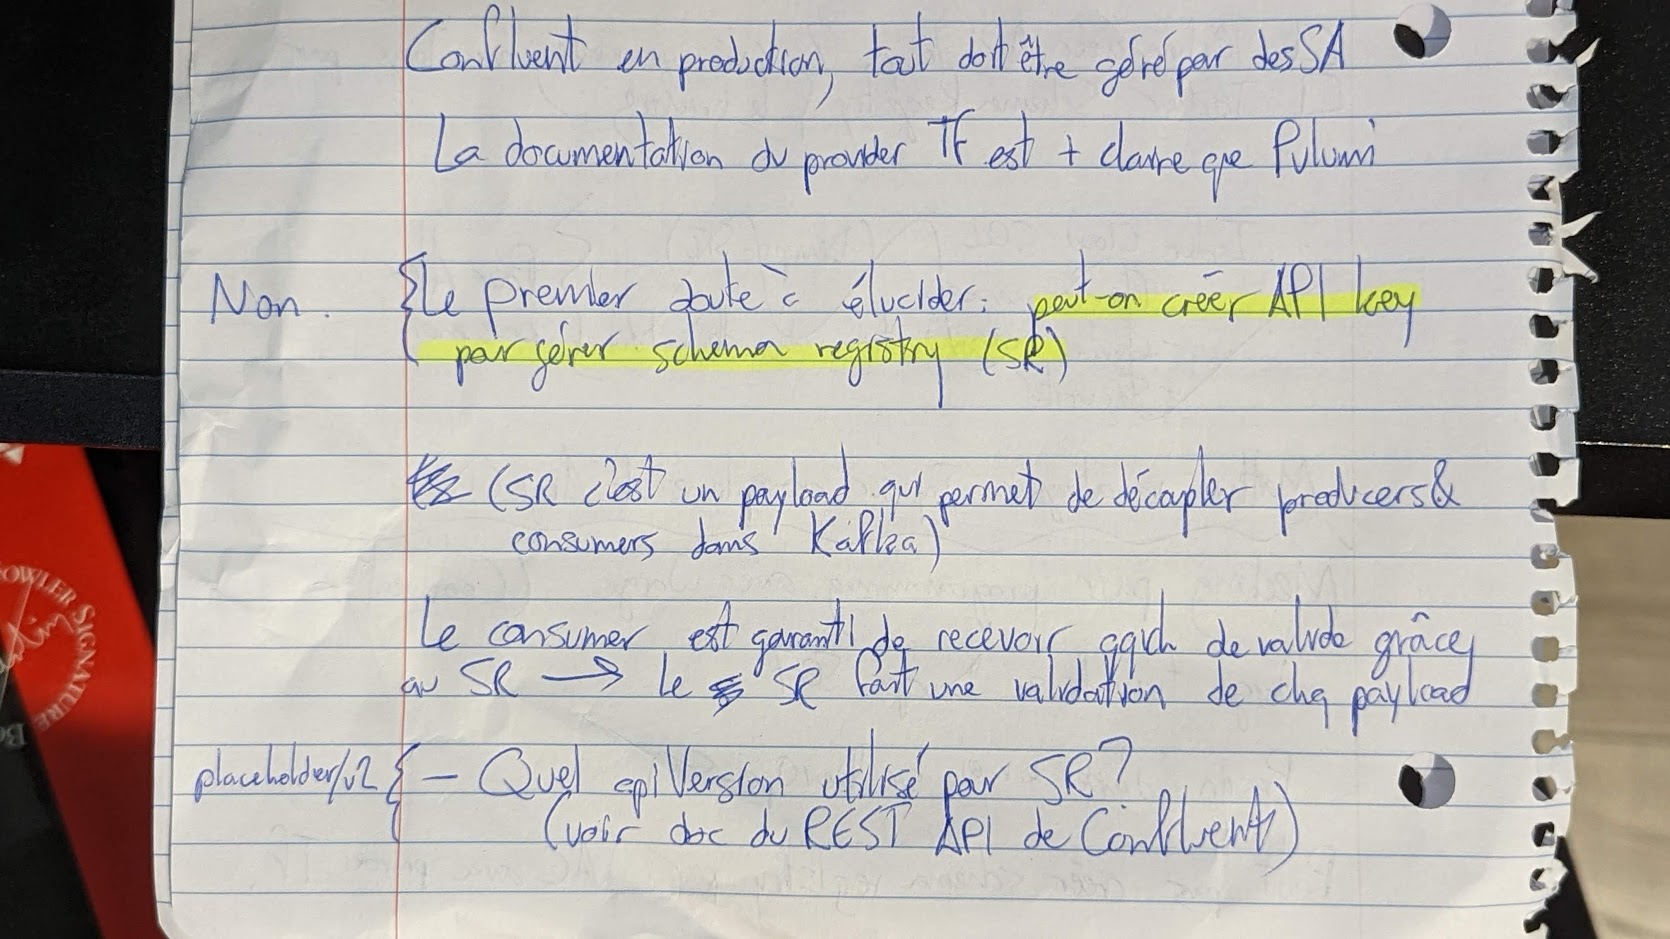 Confluent en production, tout doit être géré par des SA
La documentation du provider TF est + claire que Pulumi
Non.
Le premier doute à élucider: peut-on créer API key
pour gérer schema registry (SR)
(SR c'est un payload qui permet de découpler producers &
consumers dans Kafka)
Le consumer est garanti de recevoir qqch de valide grâce
au SR → Le SR fait une validation de chq payload
placeholder/v2
- Quel apiVersion utilisé pour SR?
(voir doc du REST API de Confluent)
OWLER SIGNATURE